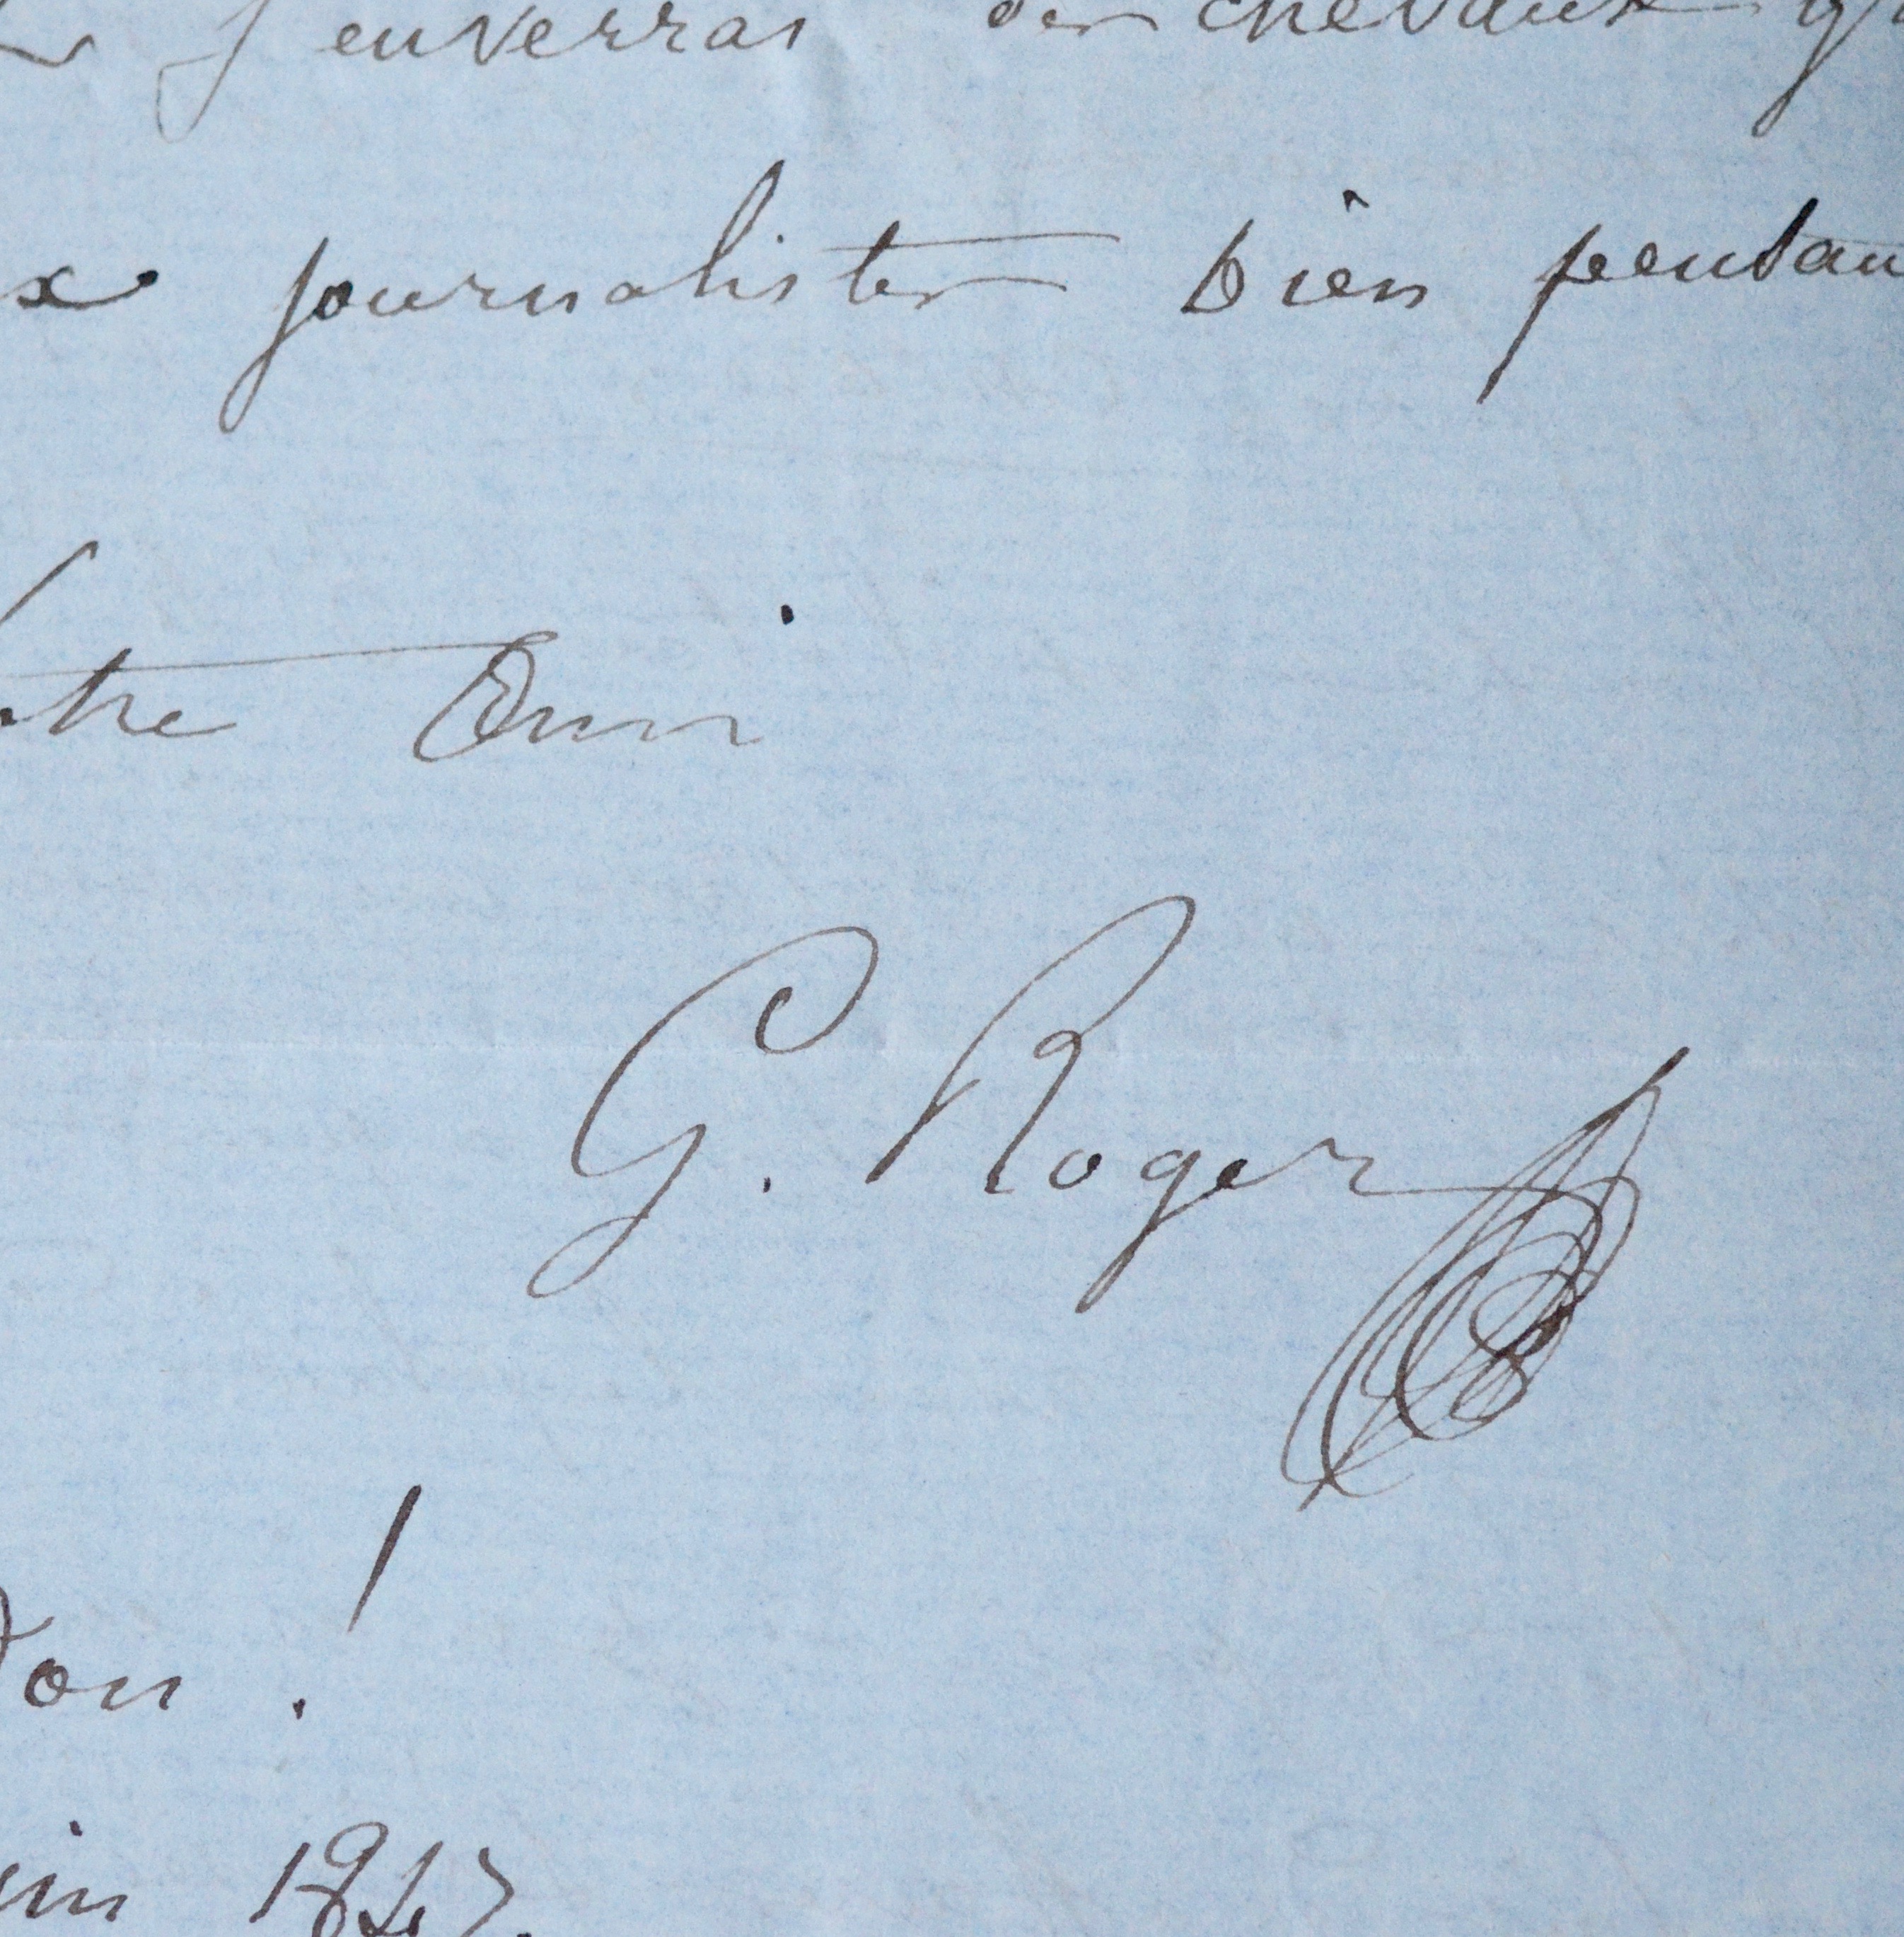 j'enverrai des chevaux
x journalistes bien pensan
tre Ami
G. Roger
don !
uin 1847.